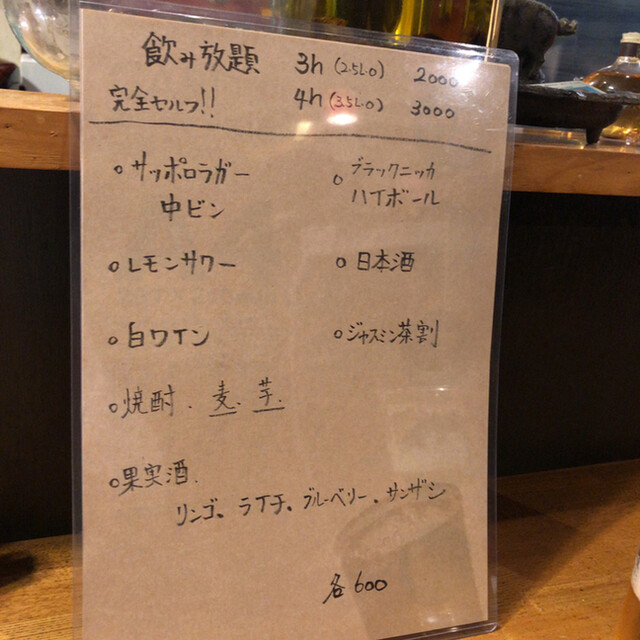 飲み放題 3h (2.5L.O) 2000
完全セルフ!! 4h (3.5L.O) 3000
○サッポロラガー
中ビン
○ブラックニッカ
ハイボール
○レモンサワー
○日本酒
○白ワイン
○ジャスミン茶割
○焼酎、麦、芋、
○果実酒、
リンゴ、ライチ、ブルーベリー、サンザシ
各600